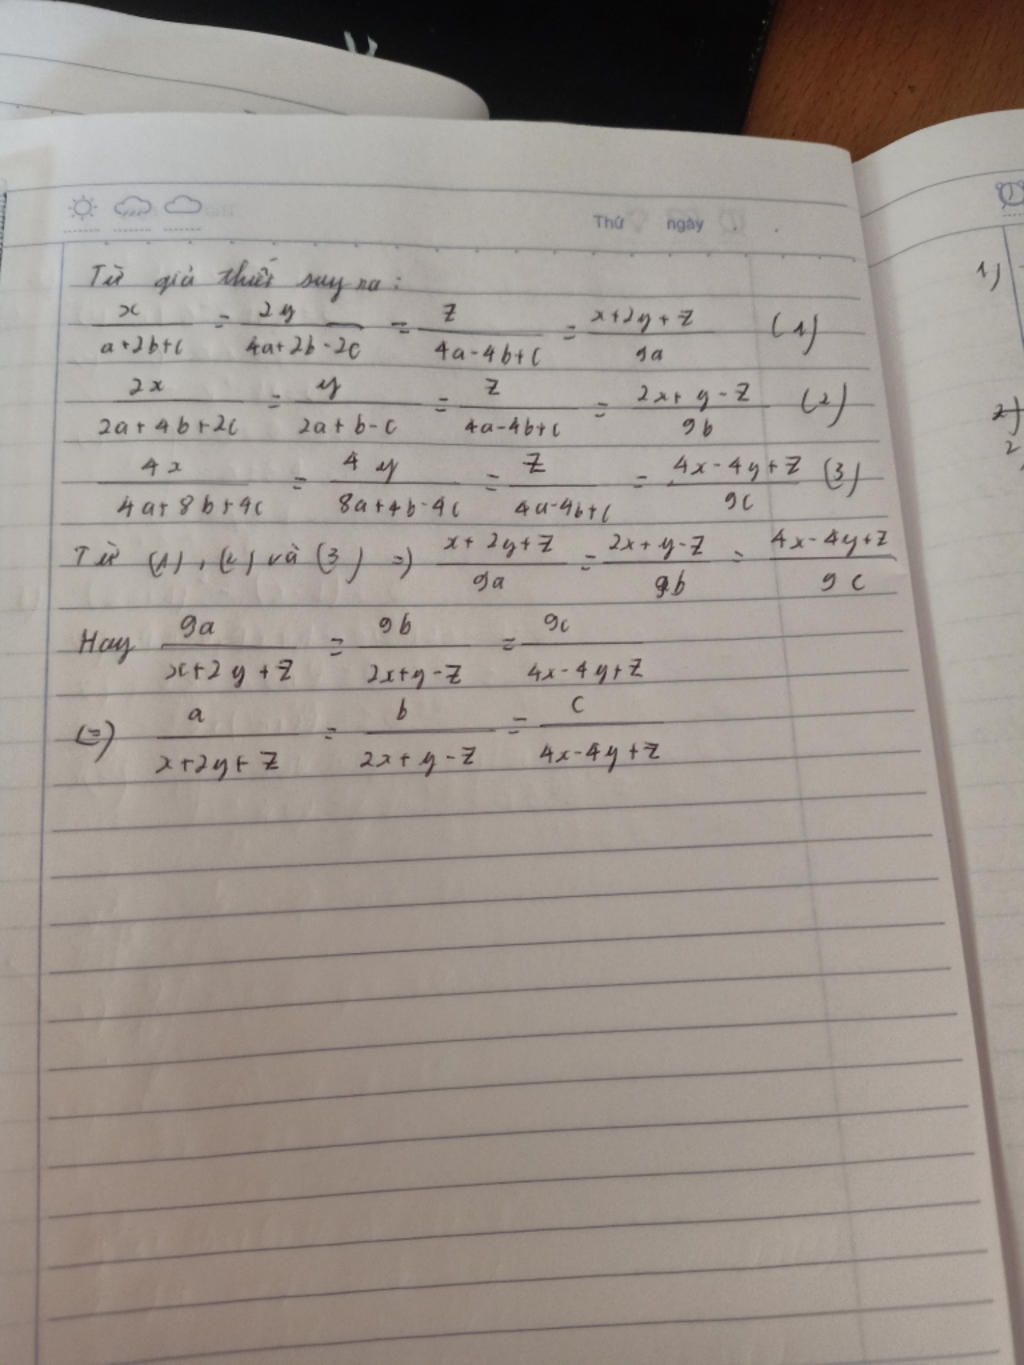 Thứ ngày
Từ giả thiết suy ra:
x/(a+2b+c) = 2y/(4a+2b-2c) = z/(4a-4b+c) = (x+2y+z)/9a (1)
2x/(2a+4b+2c) = y/(2a+b-c) = z/(4a-4b+c) = (2x+y-z)/9b (2)
4x/(4a+8b+4c) = 4y/(8a+4b-4c) = z/(4a-4b+c) = (4x-4y+z)/9c (3)
Từ (1), (2) và (3) => (x+2y+z)/9a = (2x+y-z)/9b = (4x-4y+z)/9c
Hay 9a/(x+2y+z) = 9b/(2x+y-z) = 9c/(4x-4y+z)
(=) a/(x+2y+z) = b/(2x+y-z) = c/(4x-4y+z)
1)
2)
2